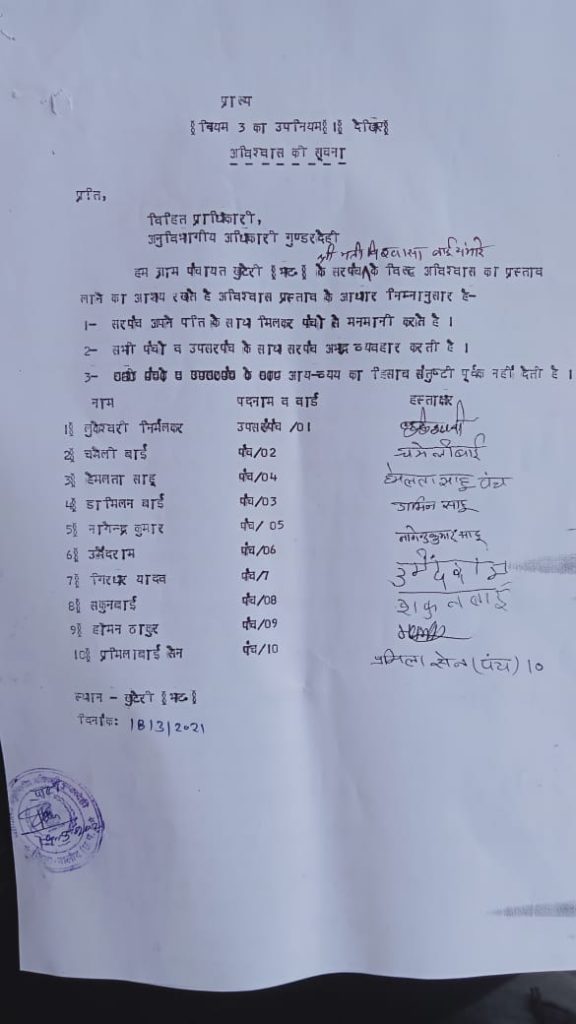 प्रारूप
§नियम 3 का उपनियम§ 1§ देखिए§
अविश्वास की सूचना
प्रति,
विहित प्राधिकारी,
अनुविभागीय अधिकारी गुण्डरदेही
श्री मती बाई
हम ग्राम पंचायत खुटेरी §भाठ§ के सरपंच के विरूद्ध अविश्वास का प्रस्ताव
लाने का आशय रखते है अविश्वास प्रस्ताव के आधार निम्नानुसार है-
1- सरपंच अपने पति के साथ मिलकर पंचो से मनमानी कराते है ।
2- सभी पंचो व उपसरपंच के साथ सरपंच अभद्र व्यवहार करती है ।
3- आय-व्यय का हिसाब संतुष्टी पूर्वक नहीं देती है ।
नाम पदनाम व वार्ड हस्ताक्षर
1§ लुकेश्वरी निर्मलकर उपसरपंच /01
2§ चमेली बाई पंच/02 चमेली बाई
3§ हेमलता साहू पंच/04 हेमलता साहू पंच
4§ डामिलन बाई पंच/03 साहू
5§ नागेन्द्र कुमार पंच/ 05 नागेन्द्र कुमार साहू
6§ उमेंदराम पंच/06 उमेंदराम
7§ गिरधर यादव पंच/7
8§ सकुनबाई पंच/08 शकुनबाई
9§ होमन ठाकुर पंच/09
10§ प्रमिलाबाई सेन पंच/10 प्रमिला सेन (पंच) 10
स्थान - खुटेरी §भाठ§
दिनांक: 18/3/2021